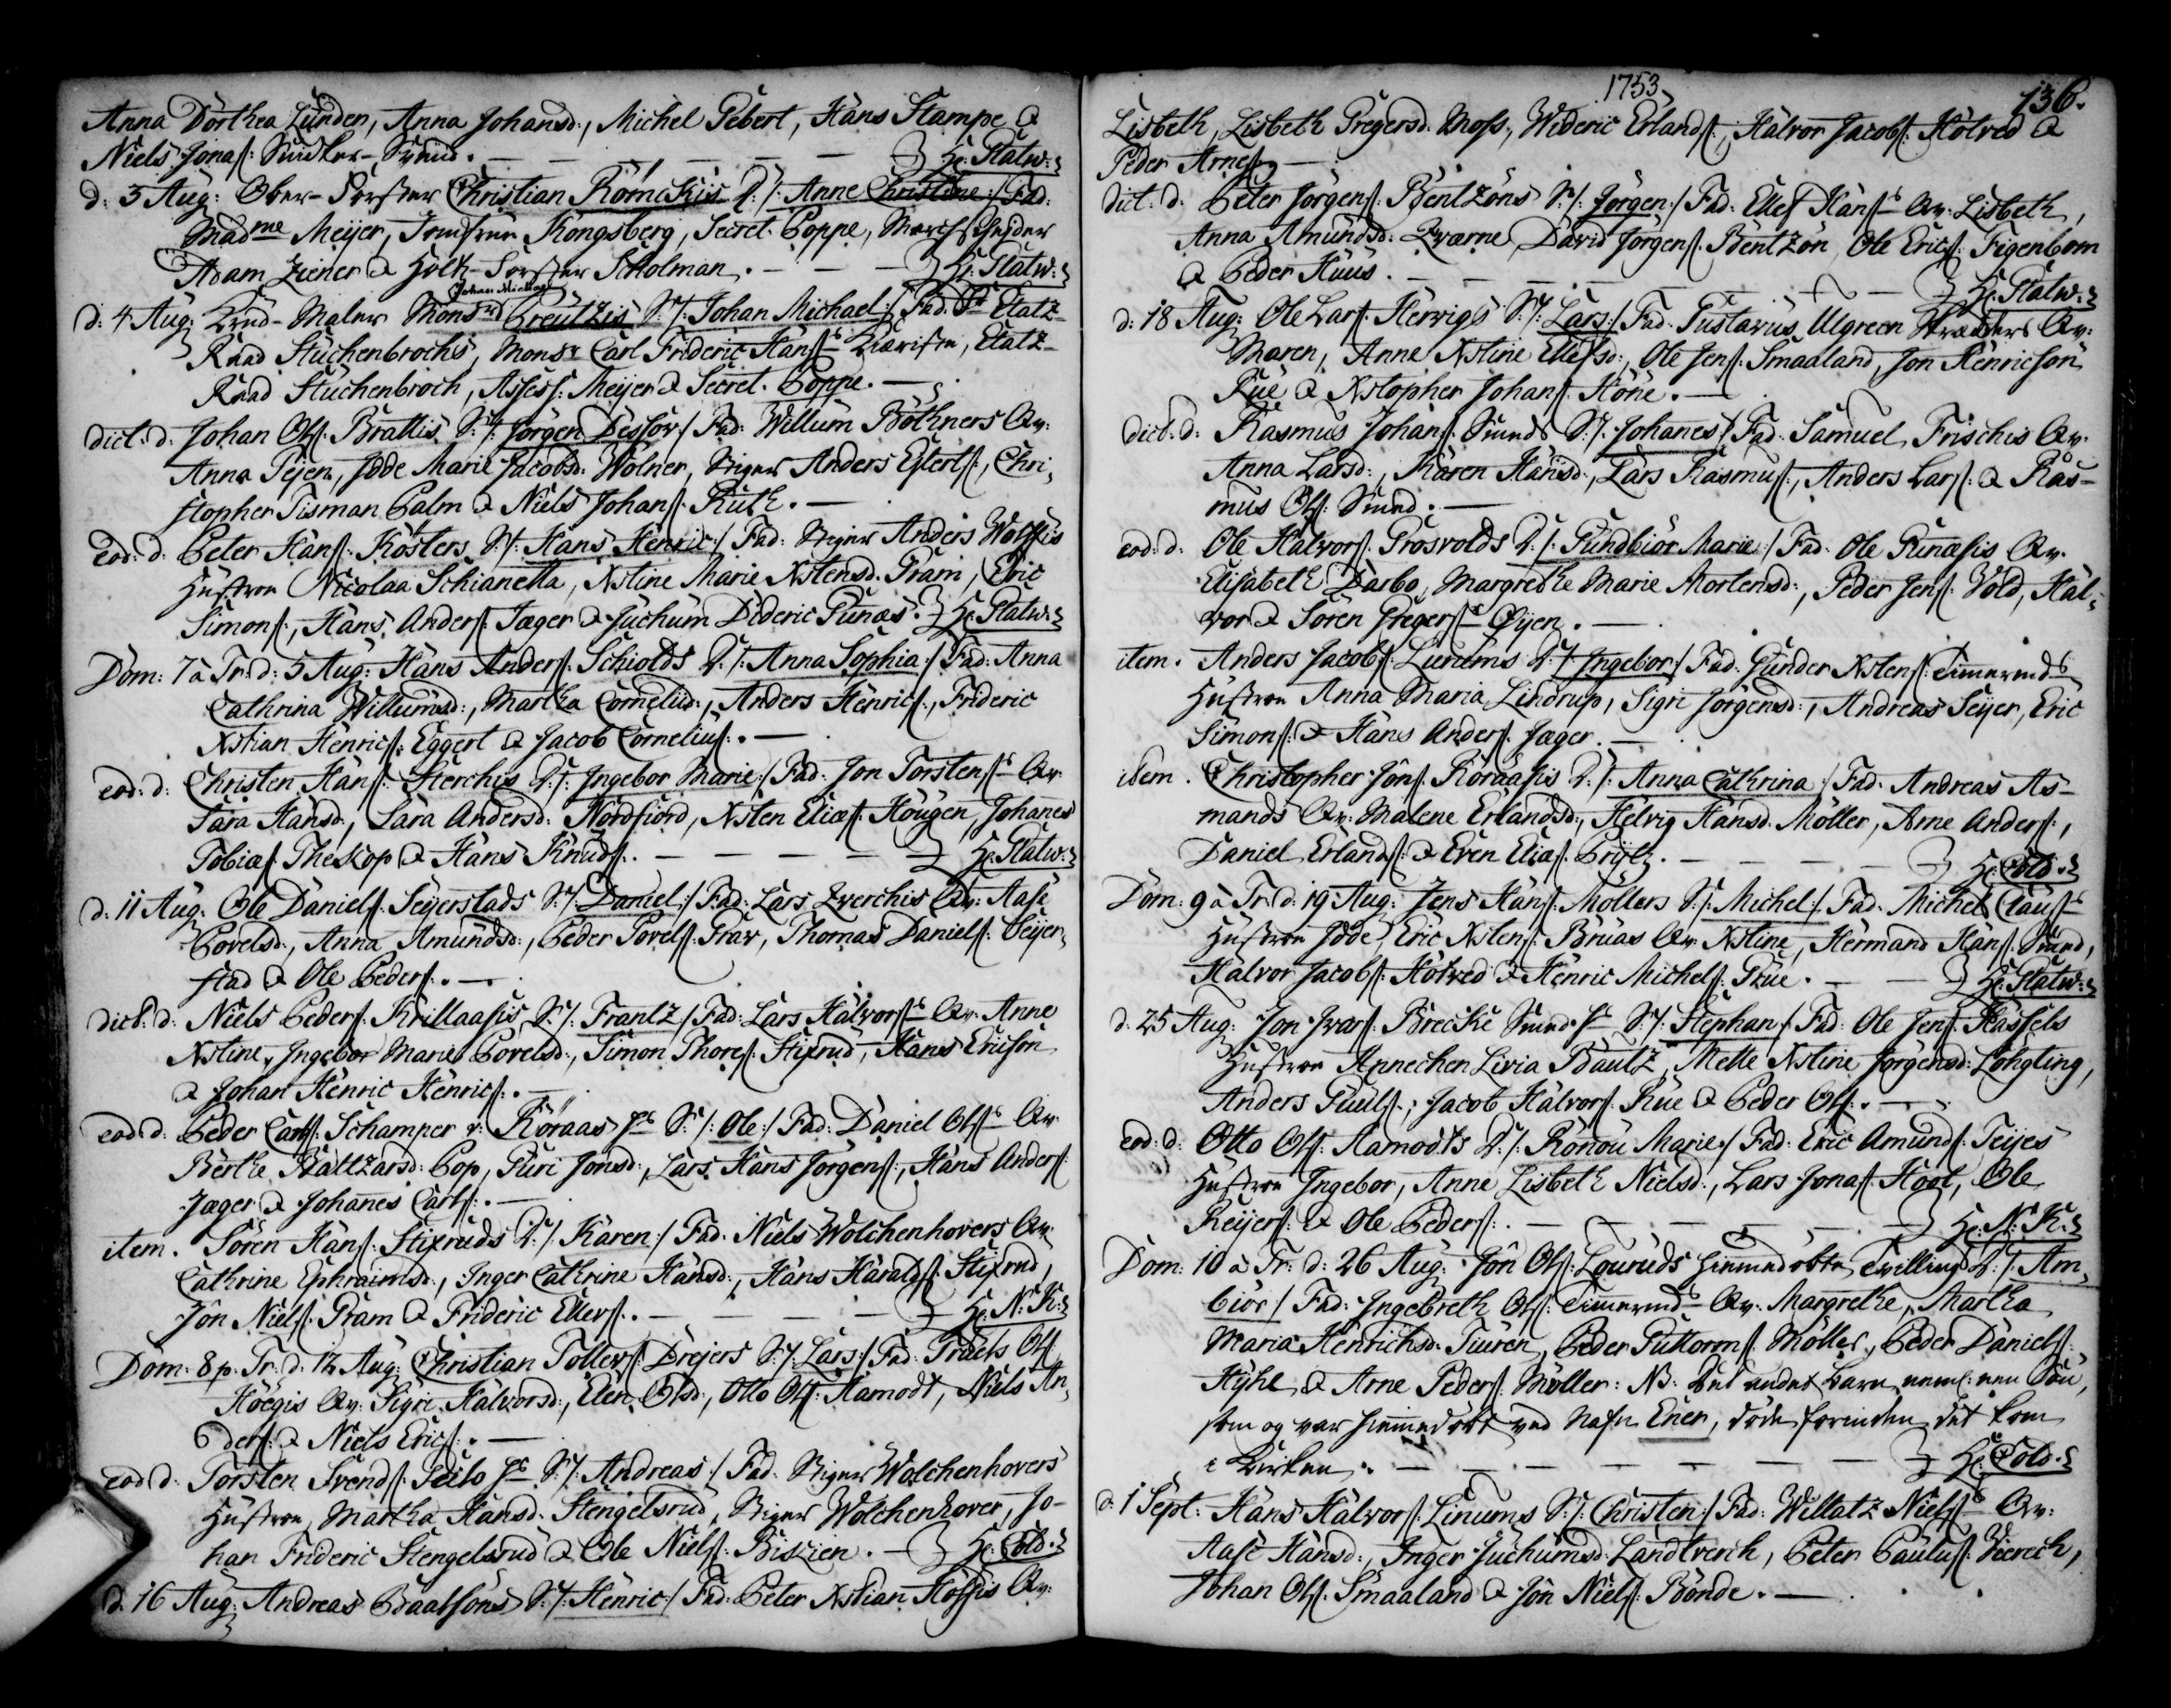 Anna Dorthea Lunden, Anna Johansd:, Michel Gebert, Hans Stampe &
Niels Jonas: Snidker-Svend. — Hr: Platw:
d: 3 Aug: Ober-Forster Christian Römckis D:/: Anne Christine:/ Fad:
Madme Meijer, Jomfrue Kongsberg, Secret. Poppe, Marchscheider
Adam Ziener & Holtz-Forster Scholman. — Hr: Platw:
Johan Michael
d: 4 Aug: Kunst-Maler Monsr Creutzis S:/: Johan Michael:/ Fad: Fr Etatz-
Raad Stuchenbrochs, Monsr Carl Frideric Hans: Kiæriste, Etatz-
Raad Stuchenbroch, Assess: Meijer & Secret. Poppe. —
dict: d: Johan Ols: Brattis S:/: Jörgen Desför:/ Fad: Willum Böthners Qv:
Anna Pejen, Jdde Marie Jacobsd: Wolner, Stiger Anders Eglerts:, Chri-
stopher Tisman Palm & Niels Johans: Ruth. —
eod: d: Peter Hans: Kösters S:/: Hans Henric:/ Fad: Stiger Anders Wolffis
Hustroe Nicolaa Schianetta, Xstine Marie Xstensd. Pram, Eric
Simons:, Hans Anders: Jæger & Juchum Dideric Funæs. Hr: Platw:
Dom: 7 a Tr: d: 5 Aug: Hans Anders: Schiolds D:/: Anna Sophia:/ Fad: Anna
Cathrina Willumsd:, Martha Cornelisd:, Anders Henrics:, Frideric
Xstian Henrics: Eggert & Jacob Cornelius:. —
eod: d: Christen Hans: Sterchis D:/: Ingebor Marie:/ Fad: Jon Torstens: Qv:
Sara Hansd:, Sara Andersd: Nordfiord, Xsten Elias: Hougen, Johanes
Tobias: Theskop & Hans Knuds:. — Hr: Platw:
d: 11 Aug: Ole Daniels: Seijerstads S:/: Daniel:/ Fad: Lars Zverchis Qv: Aase
Povelsd:, Anna Amundsd:, Peder Povels: Grav, Thomas Daniels: Seijer-
stad & Ole Peders:. —
dict: d: Niels Peders: Krillaasis S:/: Frantz:/ Fad: Lars Halvors: Qv: Anne
Xstine, Ingebor Marie Povelsd:, Simon Thores: Stixrud, Hans Erichson
& Johan Henric Henrics:. —
eod: d: Peder Carls: Schamper v: Röraas S:/: Ole:/ Fad: Daniel Ols: Qv:
Berthe Baltzarsd: Pop, Guri Jonsd:, Lars Hans Jörgens:, Hans Anders:
Jæger & Johanes Carls:. —
item. Sören Hans: Stixruds D:/: Karen:/ Fad: Niels Wolchenhovers Qv:
Cathrine Ephraimsd:, Inger Cathrine Hansd:, Hans Haralds: Stixrud,
Jön Niels: Pram & Frideric Ellevs:. — Hr: N: K:
Dom: 8 p. Tr: d: 12 Aug: Christian Tollevs: Drejers S:/: Lars:/ Fad: Truels Ols:
Höegis Qv: Sigri Halvorsd:, Elen Olsd:, Otto Ols: Aamodt, Niels An-
ders: & Niels Erics:. —
eod: d: Torsten Svends: S:/: Andreas:/ Fad: Stiger Wolchenhovers
Hustroe, Martha Hansd: Stengelsrud, Stiger Wolchenhover, Jo-
han Frideric Stengelsrud & Ole Niels: Biskien. — Hr: Cold:
d: 16 Aug: Andreas Braatsöns S:/: Henric:/ Fad: Peter Xstian Hossis Qv:
1753
136.
Lisbeth, Lisbeth Gregersd: Moss, Wideric Erlands:, Halvor Jacobs: Hotved &
Peder Arnes: —
dict: d: Peter Jörgens: Bentzöns S:/: Jörgen:/ Fad: Ellef Hans: Qv: Lisbeth,
Anna Amundsd: Qværne, David Jörgens: Bentzön, Ole Erics: Figenbom
& Peder Huus. — Hr: Platw:
d: 18 Aug: Ole Lars: Herwigs S:/: Lars:/ Fad: Gustavus Ulgreen Skræders Qv:
Maren, Anne Xstine Ellefsd:, Ole Jens: Smaaland, Jon Henricson
Rue & Xstopher Johans: Höne. —
dict: d: Rasmus Johans: Smeds S:/: Johanes:/ Fad: Samuel Frischis Qv:
Anna Larsd:, Karen Hansd:, Lars Rasmus:, Anders Lars: & Ras-
mus Ols: Smed. —
eod: d: Ole Halvors: Grosvolds D:/: Gundbiör Marie:/ Fad: Ole Gunæsis Qv:
Elisabeth Darbo, Margrethe Marie Mortensd:, Peder Jens: Vold, Hal-
vor & Sören Gregers: Øijen. —
item. Anders Jacobs: Lunums D:/: Ingebor:/ Fad: Gunder Xstens: Timermds
Hustroe Anna Maria Lindrup, Sigri Jörgensd:, Andreas Seijer, Eric
Simons: & Hans Anders: Jæger. —
item. Christopher Jöns: Röraasis D:/: Anna Cathrina:/ Fad: Andreas As-
mands Qv: Malene Erlandsd:, Helvig Hansd: Möller, Arne Anders:,
Daniel Erlands: & Even Elias: Brijtz. — Hr: Cold:
Dom: 9 a Tr: d: 19 Aug: Jens Hans: Möllers S:/: Michel:/ Fad: Michel Claus:
Hustroe Jdde, Eric Xstens: Bruas Qv: Xstine, Hermand Hans: Smed,
Halvor Jacobs: Hotved & Henric Michels: Grue. — Hr: Platw:
d: 25 Aug: Jon Ivars: Brecke Smed S:/: Stephan:/ Fad: Ole Jens: Hassels
Hustroe Annechen Livia Bautz, Mette Xstine Jörgensd: Löngting,
Anders Giuls:, Jacob Halvors: Rue & Peder Ols:. —
eod: d: Otto Ols: Aamodts D:/: Ronou Marie:/ Fad: Eric Amunds: Teijes
Hustroe Ingebor, Anne Lisbeth Nielsd:, Lars Jonas: Hoel, Ole
Reijers: & Ole Peders:. — Hr: N: K:
Dom: 10 a Tr: d: 26 Aug: Jön Ols: Louruds hiemedöbte Tvilling D:/: Am-
biör:/ Fad: Ingebreth Ols: Timermds Qv: Margrethe, Martha
Maria Henrichsd: Giüren, Peder Guttorms: Möller, Peder Daniels:
Hijhl & Arne Peders: Möller: NB. Det andet Barn, neml: een Sön,
som og var hiemedöbt ved Nafn Ener, döde forinden det kom
i Kirken. — Hr: Cold:
d: 1 Sept: Hans Halvors: Linums S:/: Christen:/ Fad: Willatz Niels: Qv:
Aase Hansd:, Inger Juchumsd: Landtverch, Peter Paulus: Vierech,
Johan Ols: Smaaland & Jön Niels: Bonde. —